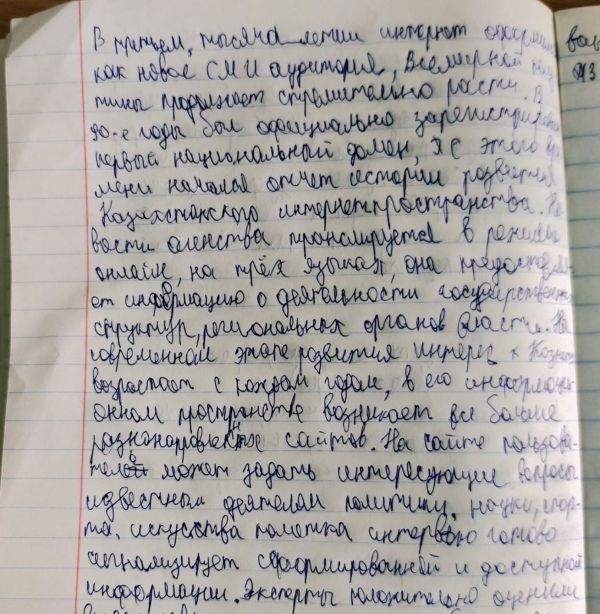 В третьем, тысяча летии интернет оформил
как новое СМИ аудитория, Всемирной пау
тины продолжает стремительно расти. В
90-е годы был официально зарегистриров
первый национальный домен, и с этого вре
мени начался отчет истории развития
Казахстанского интернетпространства. Но
вости агенства транслируется в режиме
онлайн, на трёх языках она предоставля-
ет информацию о деятельности государственных
структур, региональных органов власти. На
современном этапе развития интерес к Казнет
возрастает с каждым годом, в его информаци
онном пространстве возникает все больше
разнонаправленных сайтов. На сайте пользова-
тель может задать интересующие вопросы
известным деятелям политики, науки, спор-
та, искусства пометка интервью готово
сигнализирует сформированной и доступной
информации. Эксперты положительно оценили
вол
из